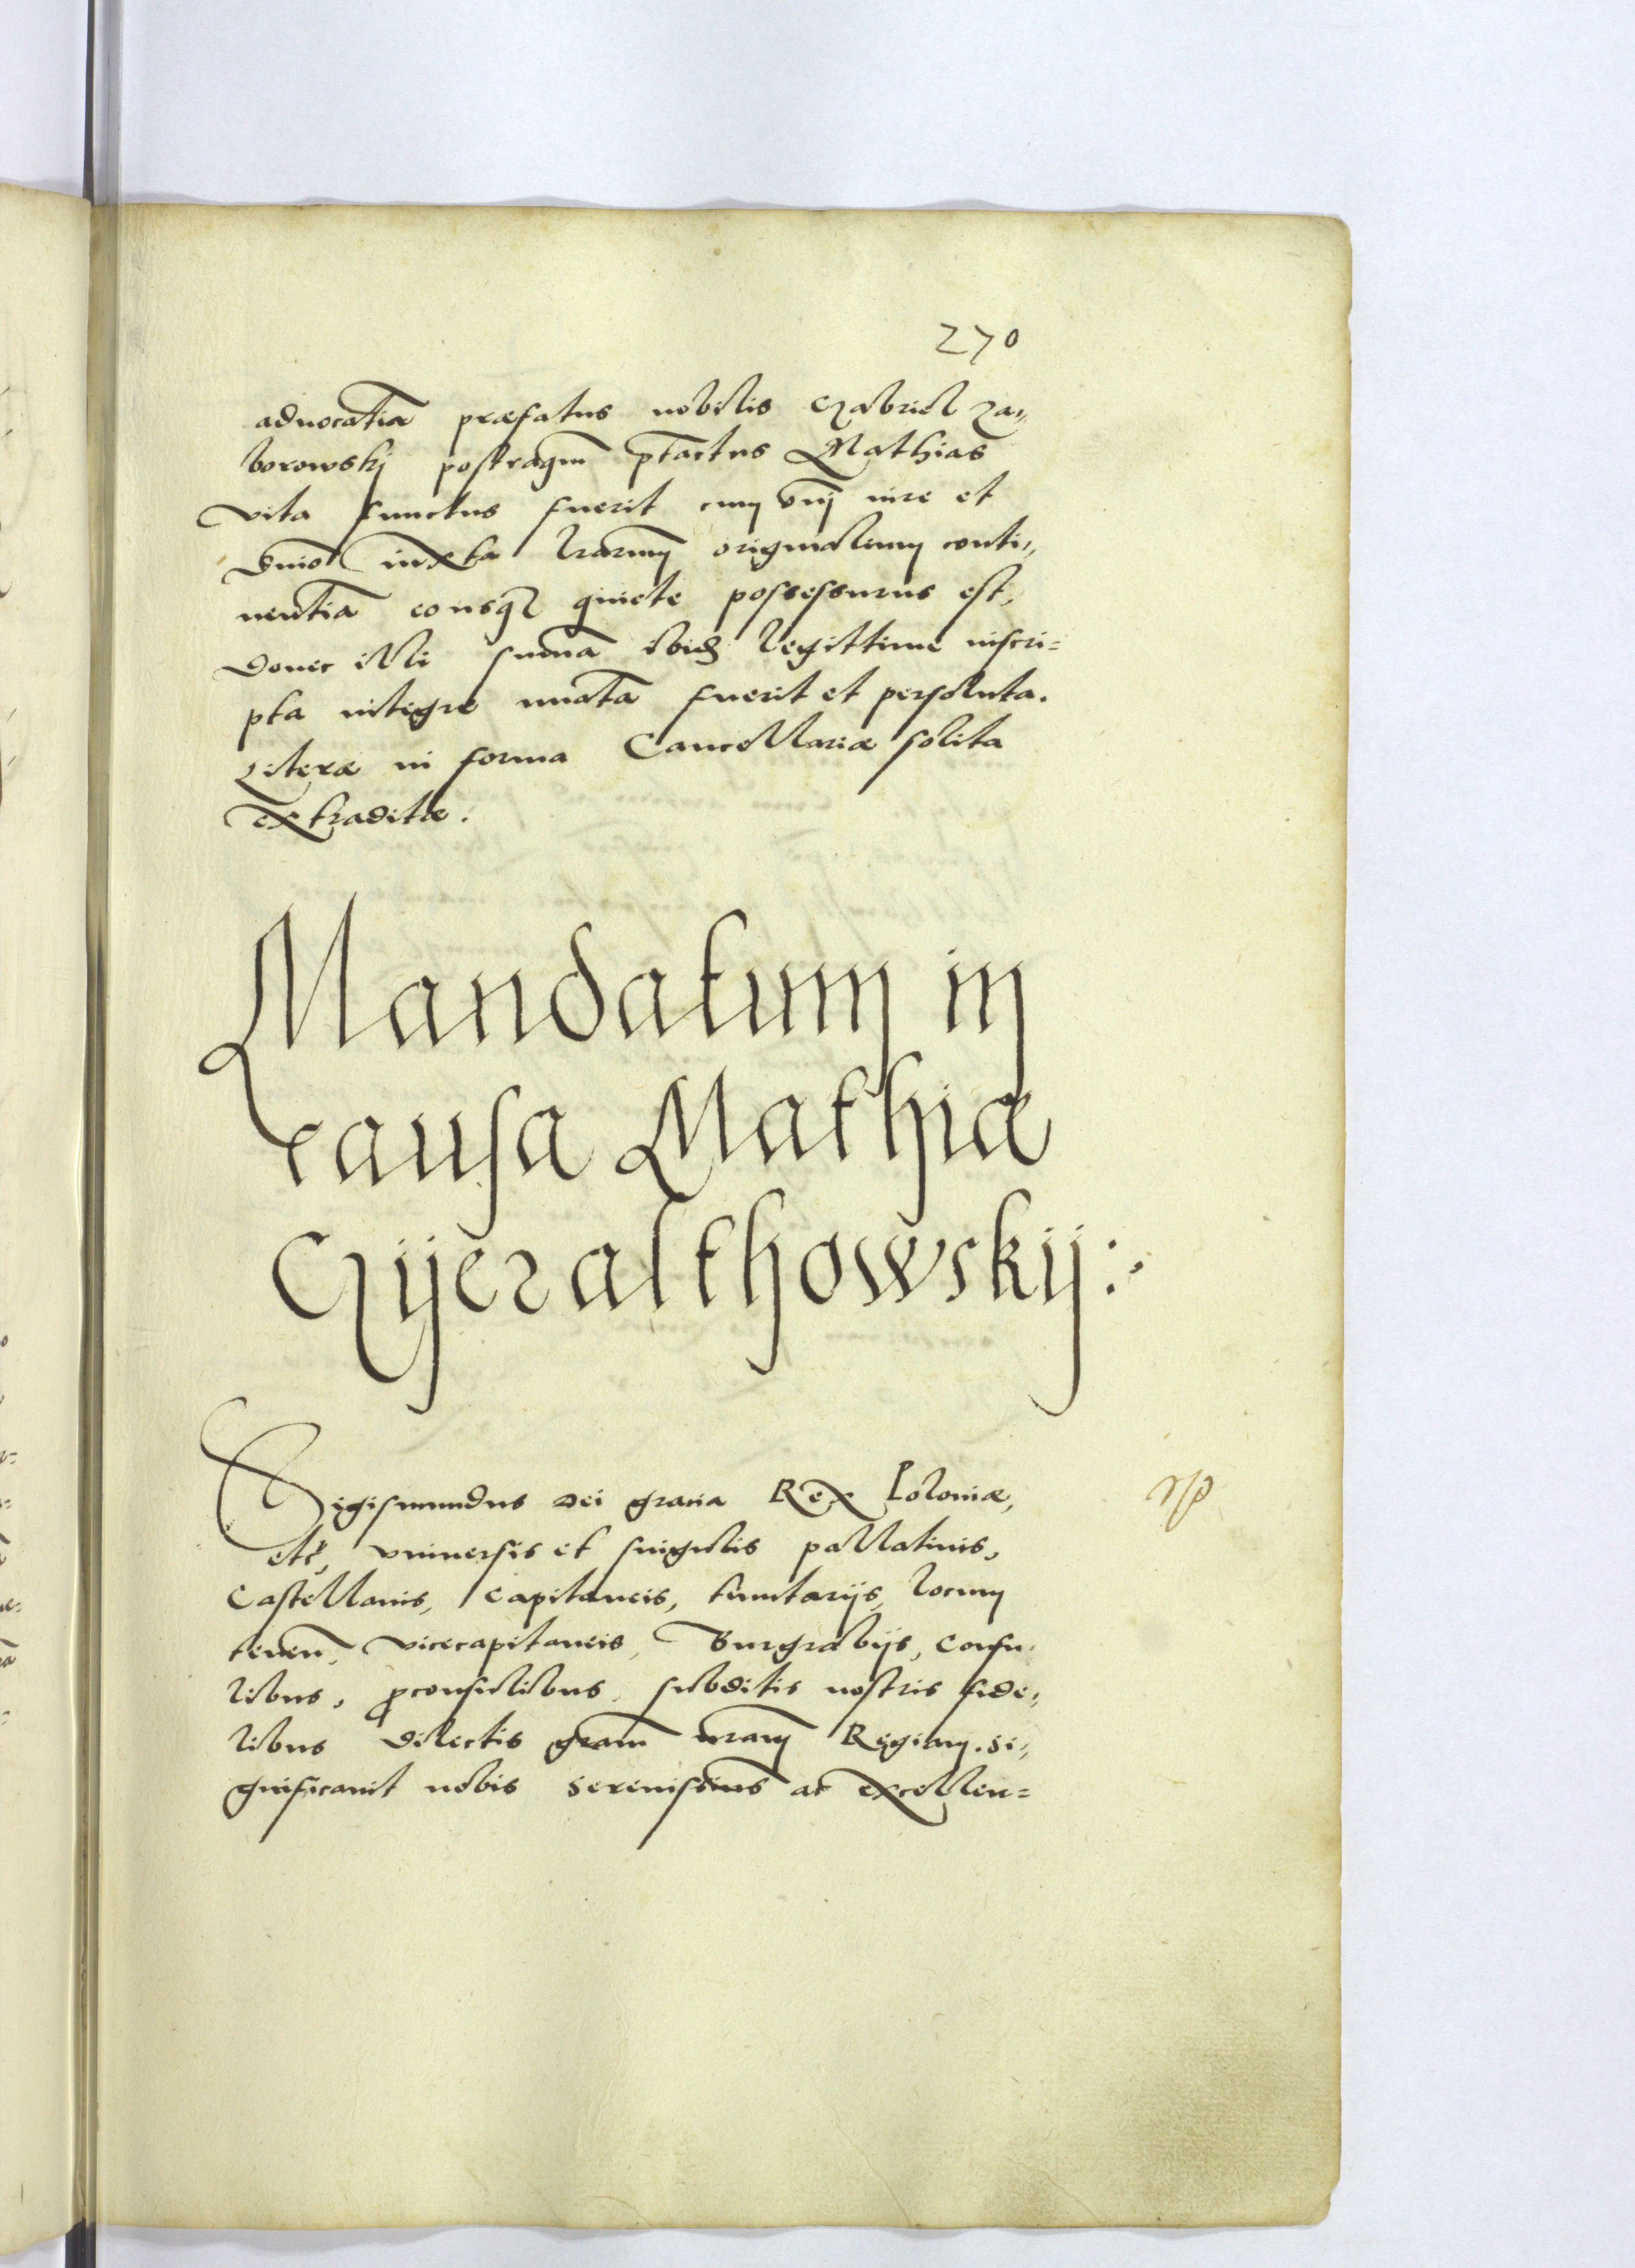 270
advocatia præfatus nobilis Gabriel Za„
borowskj postragm ptactus Mathias
vita functus fuerit cum omj iure et
dnio iuxta lrarum originalium conti„
nentia eousqz quiete possessurus est,
donec illi summa ibid legittime inscri=
pta integre nuata fuerit et persoluta.
Literæ in forma Cancellariæ solita
extraditæ.
Mandatum in
causa Mathiæ
Gijeralthowskij:
Sigismundus Dei gracia Rex Poloniæ,
etc, vniuersis et singulis pallatinis,
Castellanis, Capitaneis, tenutarijs, locum
tenen, vicecapitaneis, Burgrabijs, Consu„
libus, proconsulibus, subditis nostris fide„
libus dilectis gram nram Regiam. Si„
gnificauit nobis Serenissimus ac Excellen=